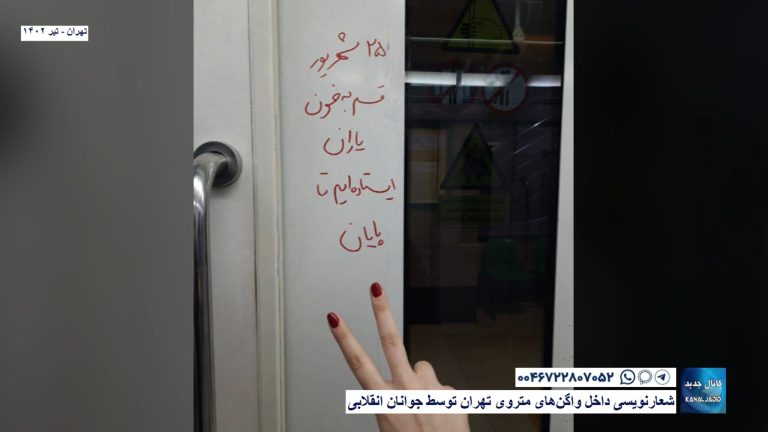 تهران - تیر ۱۴۰۲
۲۵ شهریور
قسم به خون
یاران
ایستاده‌ایم تا
پایان
۰۰۴۶۷۲۲۸۰۷۰۵۲
شعارنویسی داخل واگن‌های متروی تهران توسط جوانان انقلابی
کانال جدید
KANAL JADID